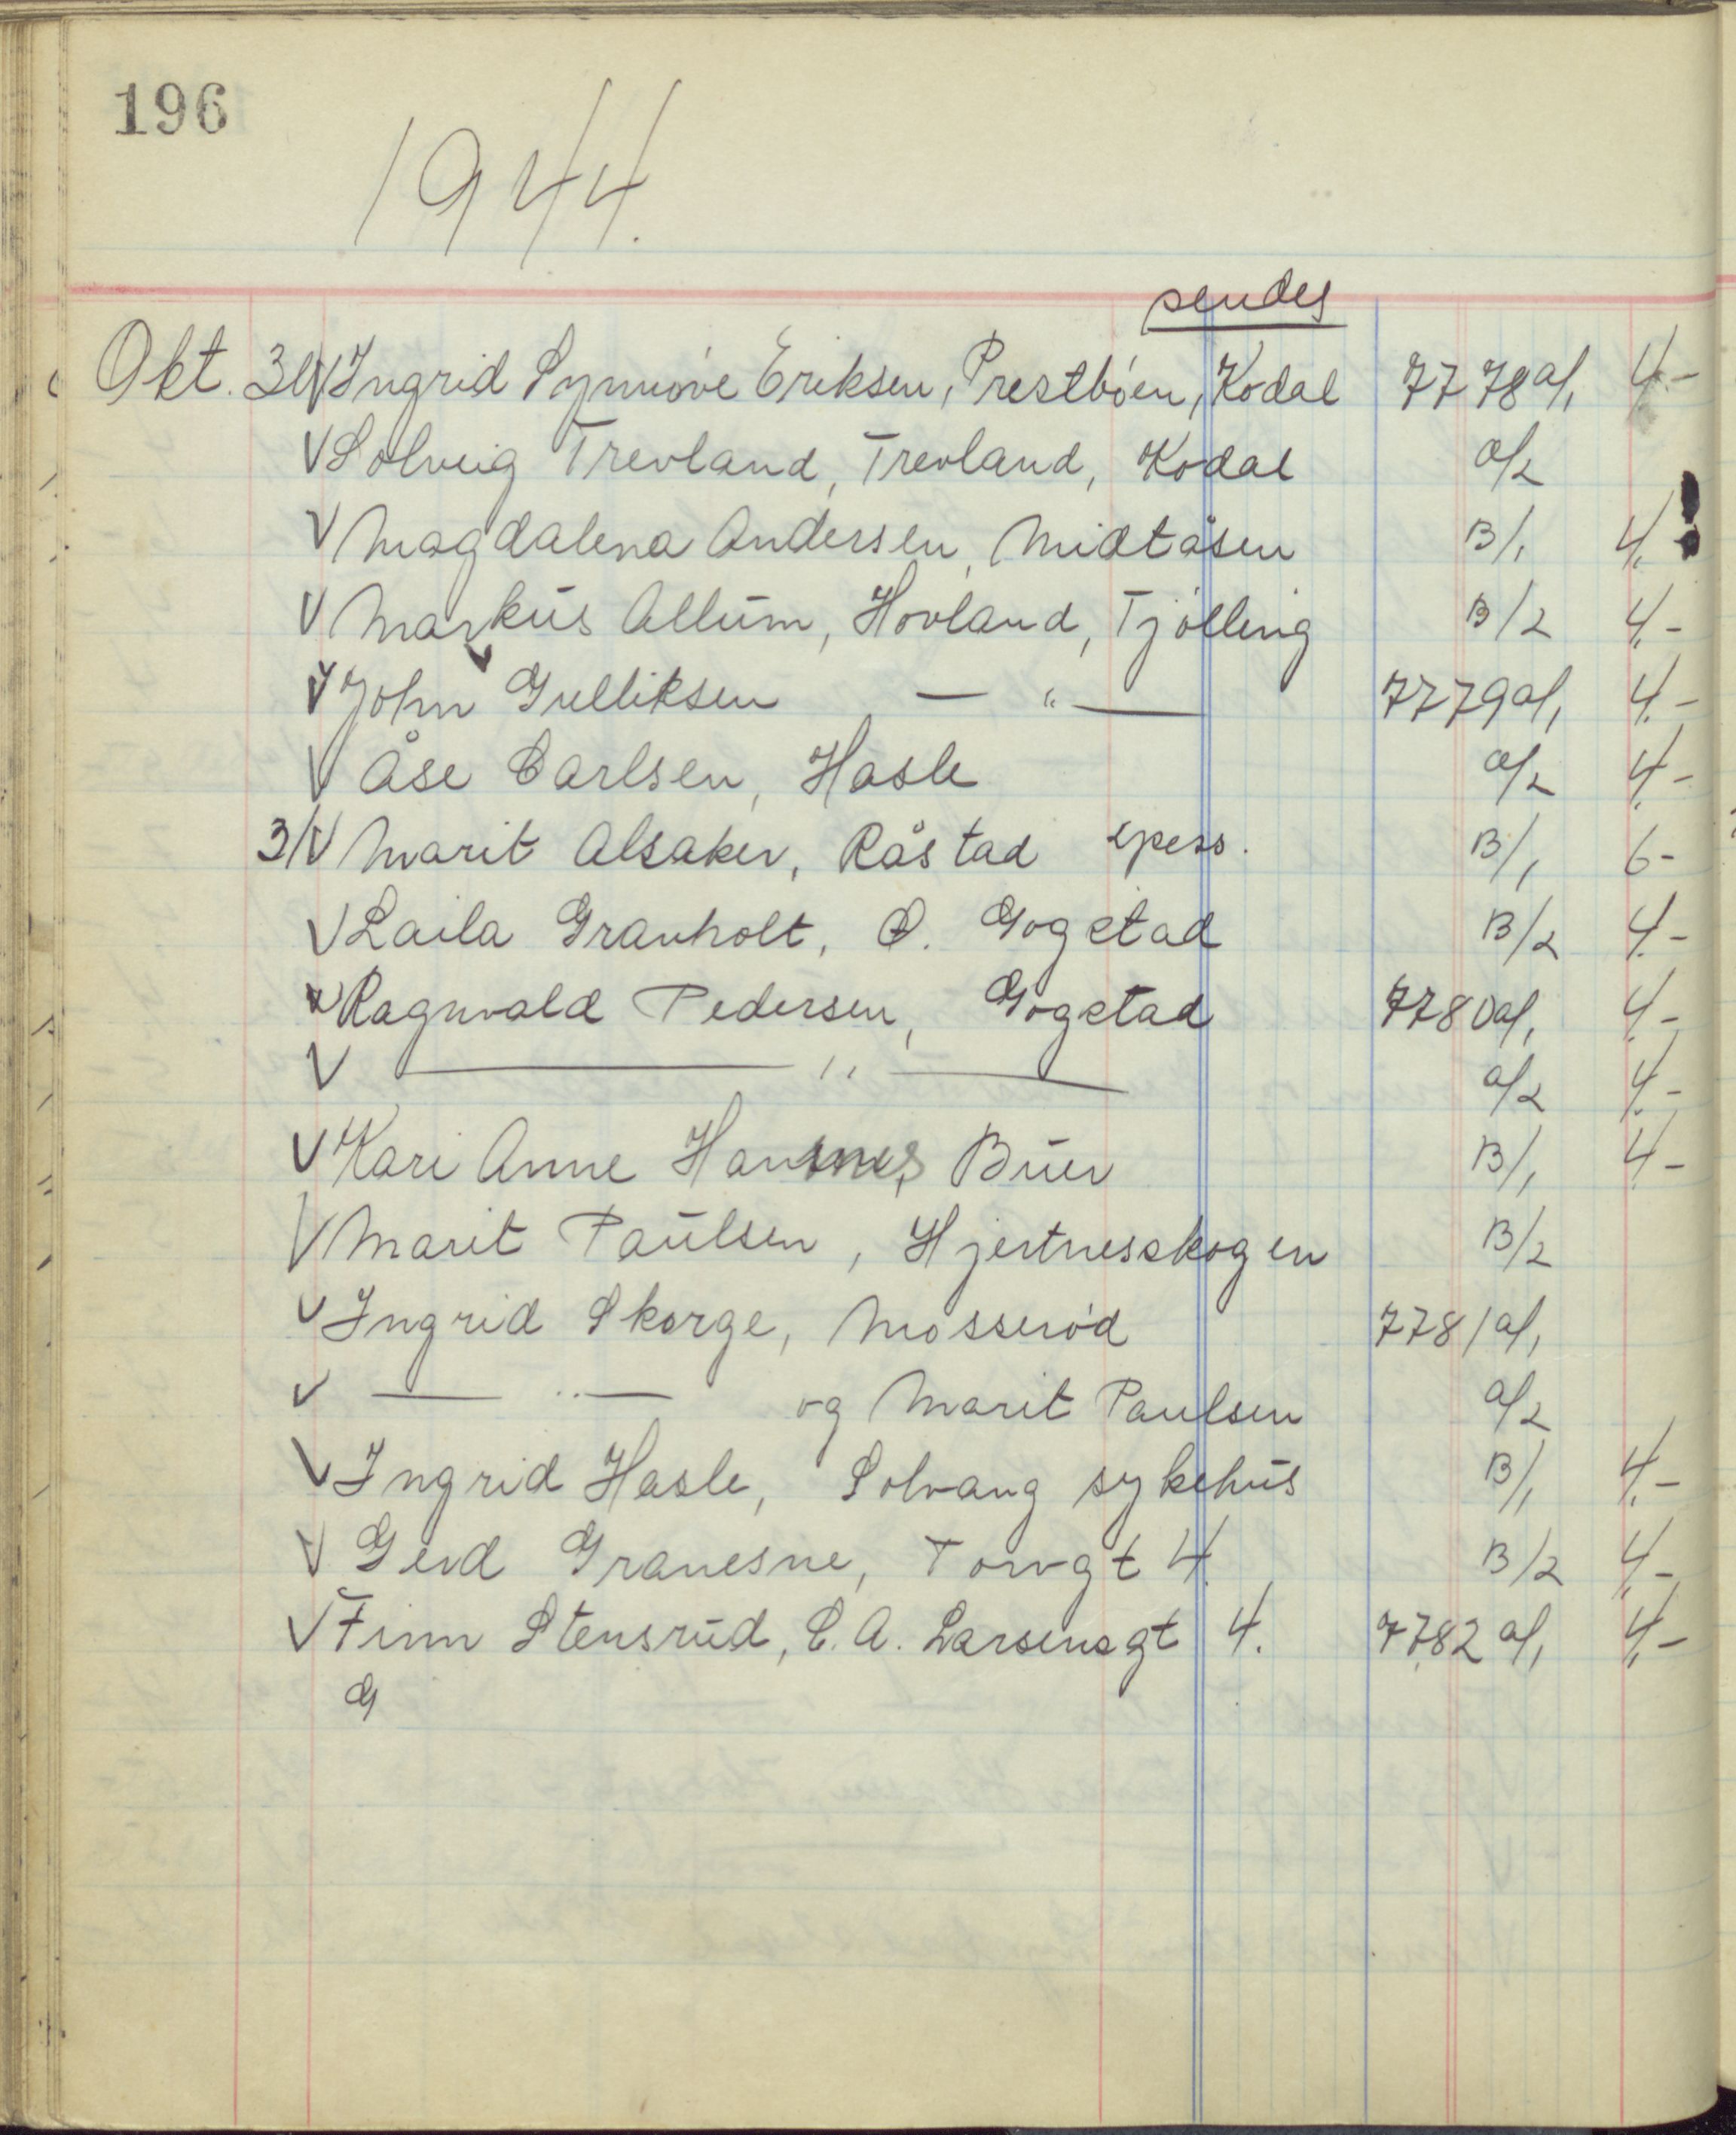 196
1944.
sendes
Okt. 30 V Ingrid Synnöve Eriksen, Prestböen, Kodal 7778 a/1 4-
V Solveig Trevland, Trevland, Kodal a/2
V Magdalena Andersen, Midtåsen B/1 4,-
V Markus Allum, Hovland, Tjölling B/2 4,-
V John Gulliksen — " — 7779 a/1 4.-
V Åse Carlsen, Hasle a/2 4,-
31 V Marit Alsaker, Råstad spess. B/1 6-
V Laila Granholt, Ø. Gogstad B/2 4,-
V Ragnvald Pedersen, Gogstad 7780 a/1 4,-
V — " — a/2 4,-
V Kari Anne Buer B/1 4-
V Marit Paulsen, Hjertnesskogen B/2
V Ingrid Skorge, Mosseröd 7781 a/1
V — " — og Marit Paulsen a/2
V Ingrid Hasle, Solvang sykehus B/1 4,-
V Gerd Granesne, Torvgt 4. B/2 4,-
V Finn Stensrud, C. A. Larsensgt 4. 7782 a/1 4,-
G